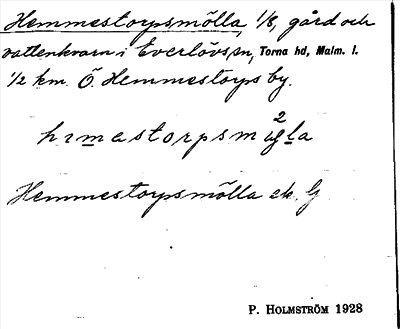 Hemmestorpsmölla, 1/8, gård och
vattenkvarn i Everlövs sn, Torna hd, Malm. l.
1/2 km. Ö. Hemmestorps by.
Hemmestorpsmölla ek. bl
P. HOLMSTRÖM 1928